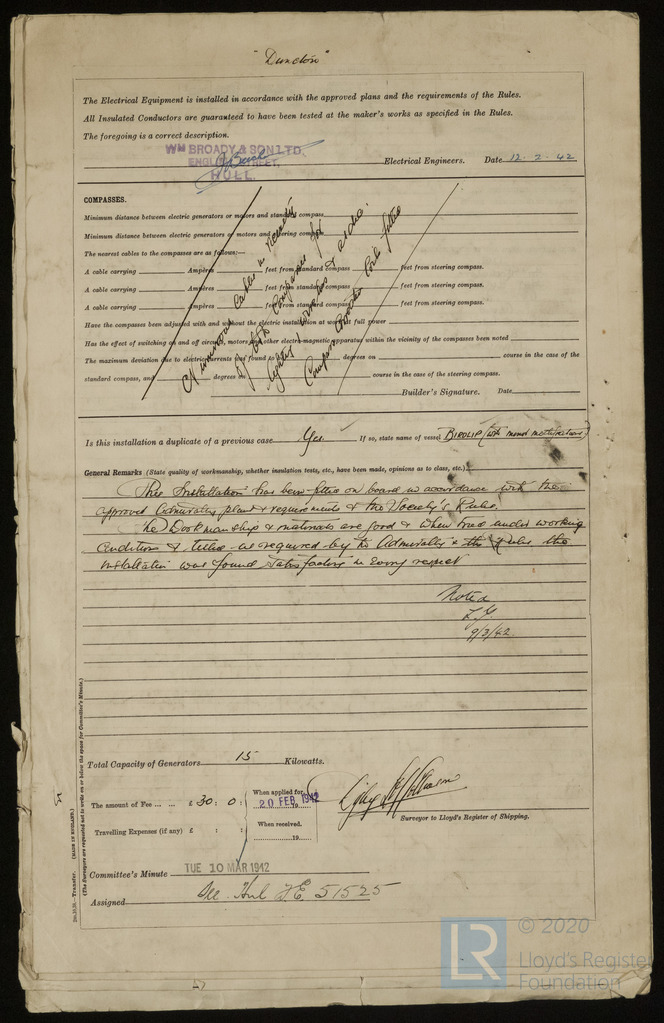 "Dunclon"
The Electrical Equipment is installed in accordance with the approved plans and the requirements of the Rules.
All Insulated Conductors are guaranteed to have been tested at the maker's works as specified in the Rules.
The foregoing is a correct description.
WM BROADY & SON LTD.
ENGLISH STREET,
HULL.
Electrical Engineers. Date 12-2-42
COMPASSES.
Minimum distance between electric generators or motors and standard compass
Minimum distance between electric generators or motors and steering compass
The nearest cables to the compasses are as follows:—
A cable carrying Ampères feet from standard compass feet from steering compass.
A cable carrying Ampères feet from standard compass feet from steering compass.
A cable carrying Ampères feet from standard compass feet from steering compass.
Have the compasses been adjusted with and without the electric installation at work at full power
Has the effect of switching on and off circuits, motors or other electro-magnetic apparatus within the vicinity of the compasses been noted
The maximum deviation due to electric currents was found to be degrees on course in the case of the
standard compass, and degrees on course in the case of the steering compass.
cables in vicinity
of both compasses for
lighting
Compass Corrector Coils fitted
Builder's Signature. Date
Is this installation a duplicate of a previous case Yes If so, state name of vessel BIRDLIP (with minor modifications)
General Remarks (State quality of workmanship, whether insulation tests, etc., have been made, opinions as to class, etc.)
This Installation has been fitted on board in accordance with the
approved Admiralty plans & requirements & the Society's Rules.
The Workmanship & materials are good & when tried under working
conditions & tested as required by the Admiralty & the Rules the
installation was found satisfactory in every respect
Noted
9/3/42
Total Capacity of Generators 15 Kilowatts.
The amount of Fee ... ... £ 30 : 0 :
When applied for,
20 FEB 1942
19
Travelling Expenses (if any) £ : :
When received,
19
Surveyor to Lloyd's Register of Shipping.
Committee's Minute TUE 10 MAR 1942
Assigned See Hul F.E. 51525
Transfer. (MADE IN ENGLAND.)
(The Surveyors are requested not to write on or below the space for Committee's Minute.)
LR
© 2020
Lloyd's Register
Foundation